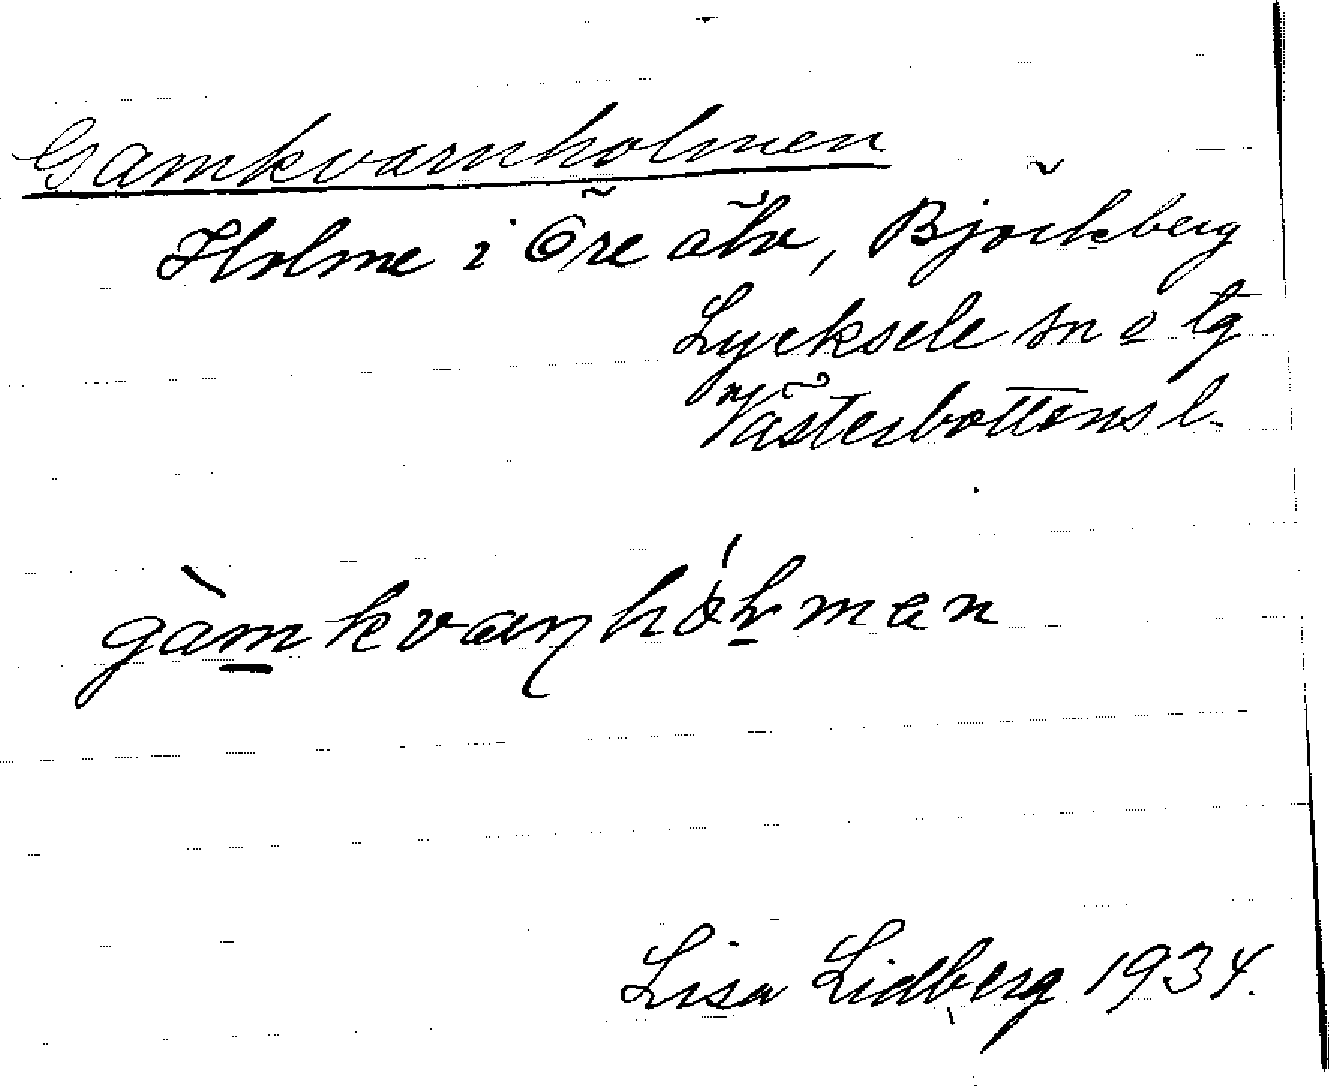 Gamkvarnholmen
Holme i Öre älv, Björkberg
Lycksele sn o tg
Västerbottens l.
gàmkvaɳhóɫman
Lisa Lidberg 1934.